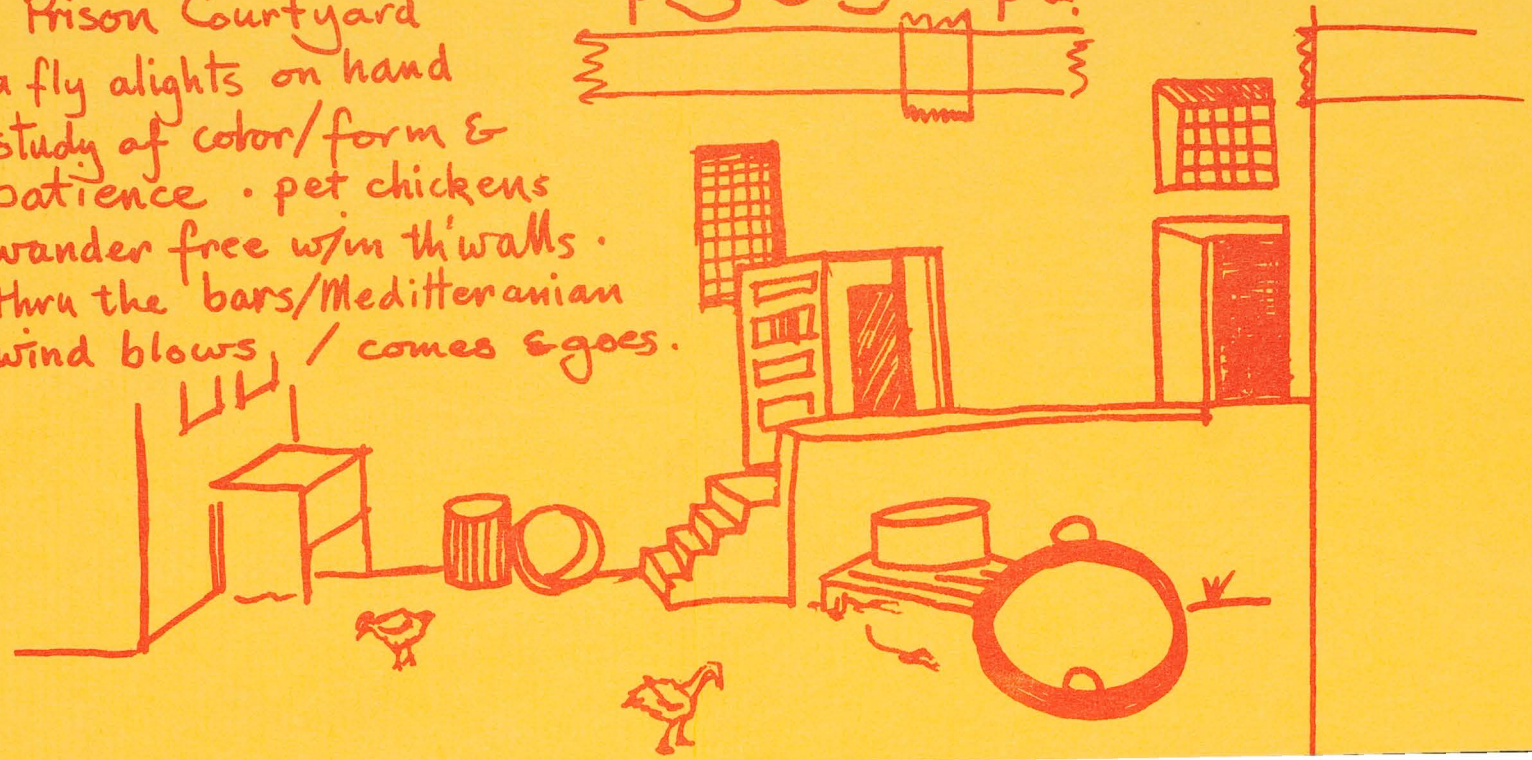 Prison Courtyard
a fly alights on hand
study of color/form &
patience · pet chickens
wander free w/in th' walls ·
thru the bars/Meditteranian
wind blows, / comes & goes.